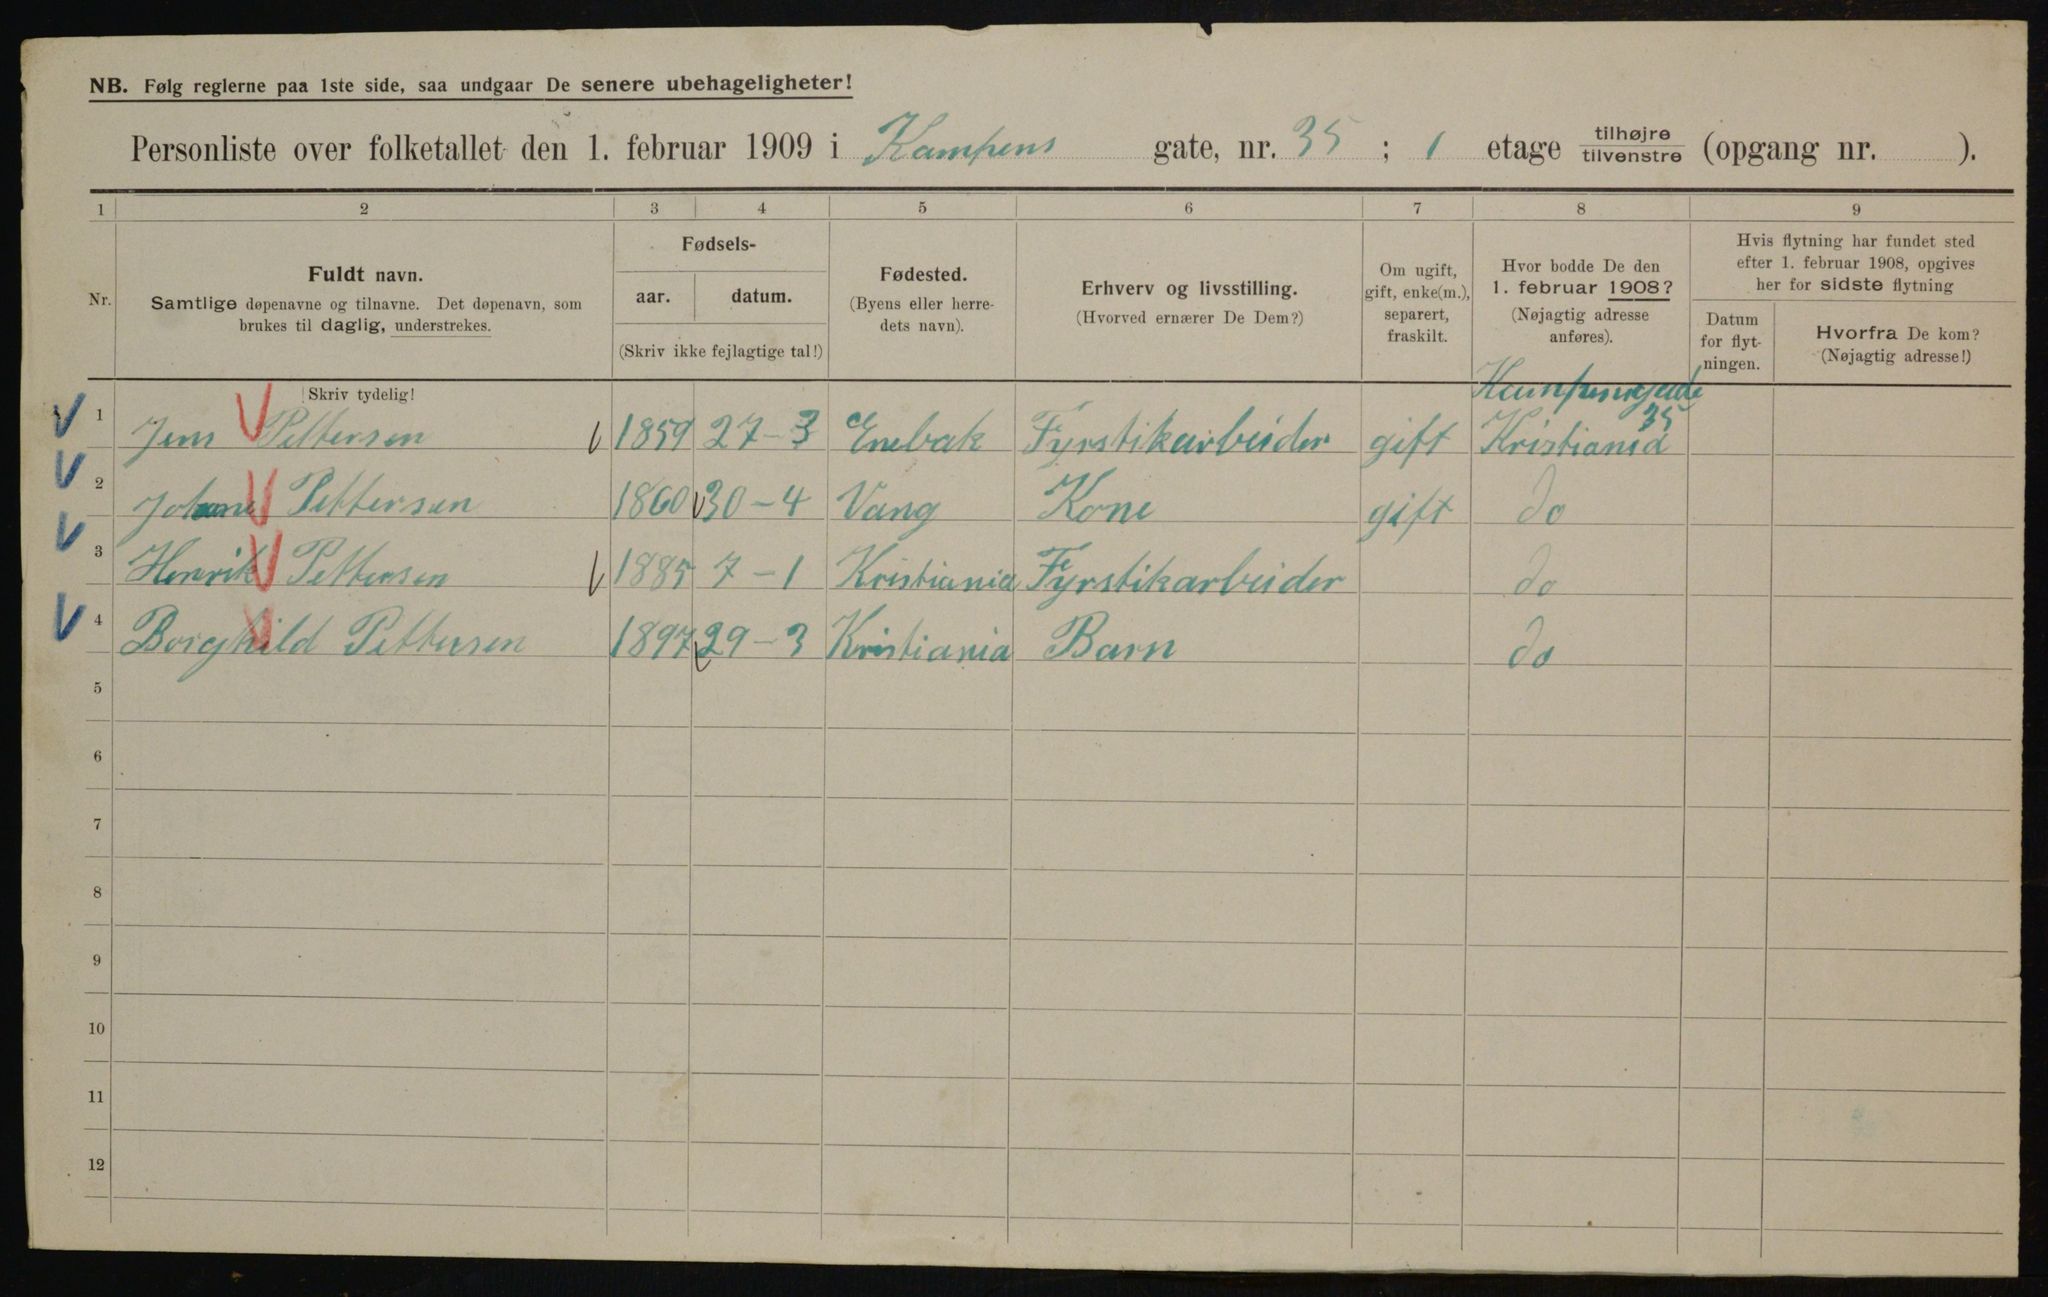 NB. Følg reglerne paa 1ste side, saa undgaar De senere ubehageligheter!
Personliste over folketallet den 1. februar 1909 i Kampens gate, nr. 35 ; 1 etage tilhøjre/tilvenstre (opgang nr. ).
1 2 3 4 5 6 7 8 9
Nr.
Fuldt navn.
Samtlige døpenavne og tilnavne. Det døpenavn, som
brukes til daglig, understrekes.
Fødsels-
aar. datum.
(Skriv ikke fejlagtige tal!)
Fødested.
(Byens eller herre-
dets navn).
Erhverv og livsstilling.
(Hvorved ernærer De Dem?)
Om ugift,
gift, enke(m.),
separert,
fraskilt.
Hvor bodde De den
1. februar 1908?
(Nøjagtig adresse
anføres).
Hvis flytning har fundet sted
efter 1. februar 1908, opgives
her for sidste flytning
Datum
for flyt-
ningen.
Hvorfra De kom?
(Nøjagtig adresse!)
Skriv tydelig!
Kampensgade 35
1 Jens Pettersen 1859 27-3 Enebak Fyrstikarbeider gift Kristiania
2 Johanne Pettersen 1860 30-4 Vang Kone gift do
3 Henrik Pettersen 1885 7-1 Kristiania Fyrstikarbeider do
4 Borghild Pettersen 1897 29-3 Kristiania Barn do
5
6
7
8
9
10
11
12